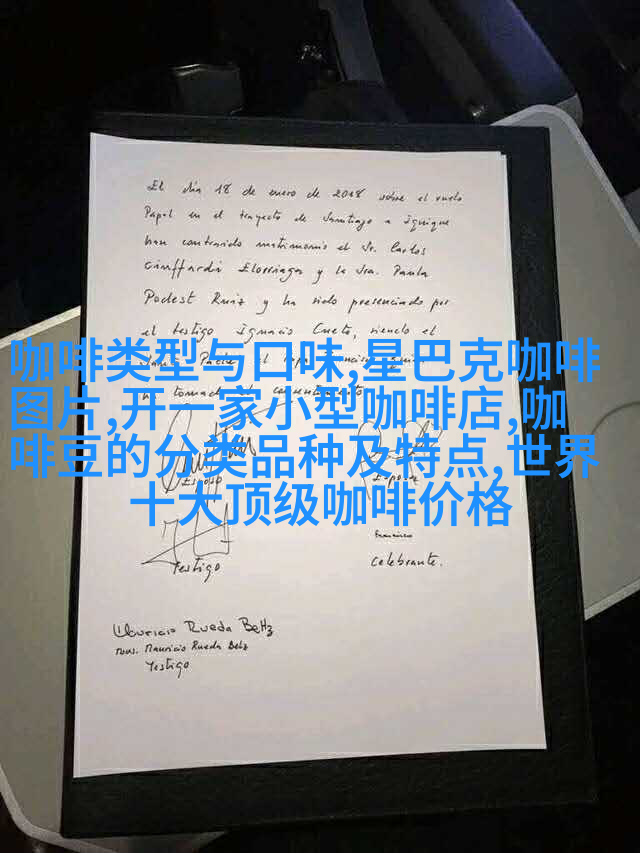 El día 18 de enero de 2018 sobre el vuelo
Papal en el trayecto de Santiago a Iquique
han contraído matrimonio el Sr. Carlos
Ciuffardi Elorriaga y la Sra. Paula
Podest Ruiz y ha sido presenciado por
el testigo Ignacio Cueto, siendo el
咖啡类型与口味,星巴克咖啡
图片,开一家小型咖啡店,咖
啡豆的分类品种及特点,世界
十大顶级咖啡价格
Esposo
Esposa
Francisco
Testigo
Celebrante.
Mauricio Rueda Beltz
Mons. Mauricio Rueda Beltz
Testigo